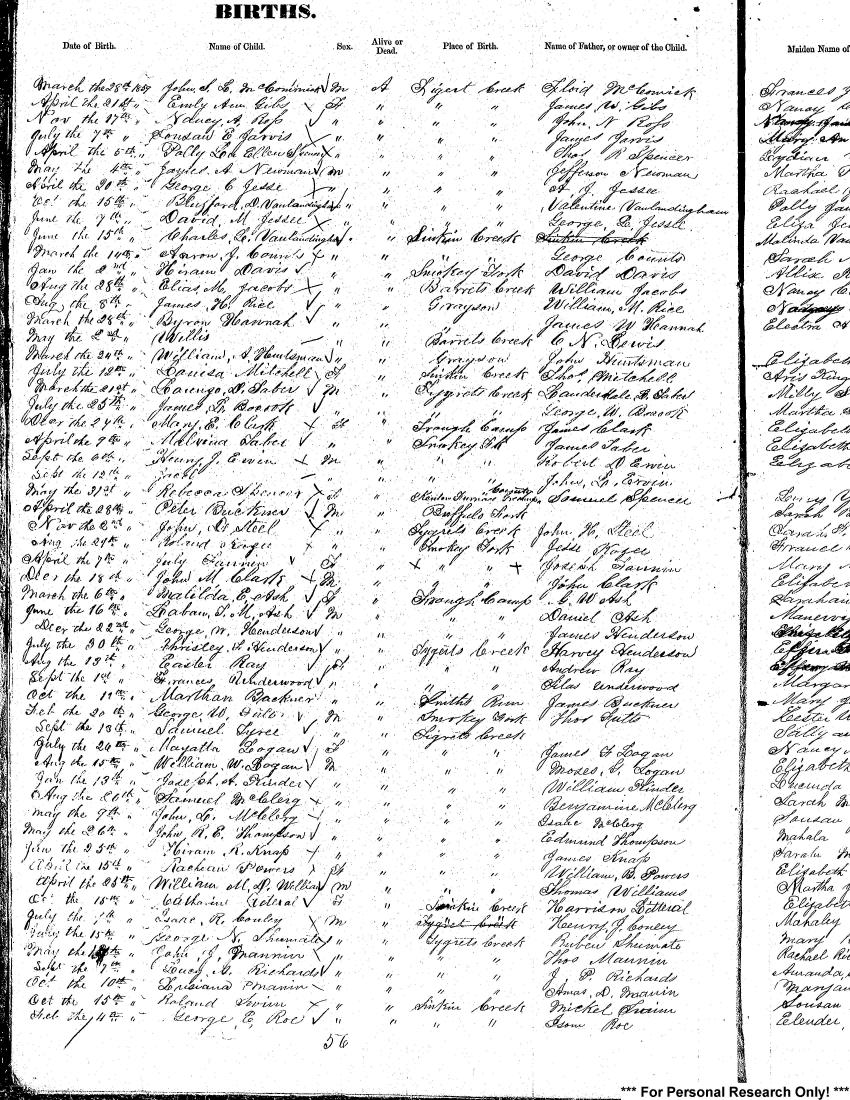 BIRTHS.
Date of Birth. Name of Child. Sex. Alive or Dead. Place of Birth. Name of Father, or owner of the Child. Maiden Name of
March the 28th 1859 John S. L. McCormick M A Tigert Creek Floid McCormick Frances
April the 21st " Emily Ann Gibs F " " " James W. Gibs Nancy
Nov the 17th " Nancy A. Ross " " " " John N Ross
July the 7th " Lousan E Jarvis " " " " James Jarvis Mary An
April the 5th " Polly Ellen Spencer " " " " Thos R Spencer Lydian
May the 4th " James A Newman M " " " Jefferson Newman Martha
April the 20th " George C Jesse " " " " A. J. Jessee Rachael
Oct the 15th " Blufford D. Vanlandingham " " " " Valentine Vanlandingham Polly Jan
June the 7th " David, M Jessee " " " " George L. Jesse Eliza Jes
June the 15th " Charles L. Vanlandingham " " Sinkin Creek Sinkin Creek Malinda Va
March the 14th " Aaron J. Counts " " " " George Counts Sarah
Jan the 2nd " Hiram Davis " " Smokey Fork David Davis Allix
Aug the 28th " Elias M. Jacobs " " Barrets Creek William Jacobs Nancy C
Aug the 8th " James, H. Rice " " Grayson William, M. Rice Nancy
March the 28th " Byron Hannah " " " James W Hannah Electra
May the 2nd " Willis " " Barrets Creek C. N. Lewis
March the 24th " William, A. Huntsman " " Grayson John Huntsman Elizabeth
July the 12th " Louisa Mitchell F " Sinkin Creek Thos, Mitchell Aris King
March the 21st " Lorenzo, D, Taber M " Tygrets Creek Lauderdale D. Taber Milly
July the 25th " James, L. Bocook " " " " George, W. Bocook Martha
Decr the 24th " Mary, E. Clark F " Trough Camp James Clark Elizabeth
April the 9th " Malvina Taber " " Smokey Fk James Taber Elizabeth
Sept the 6th " Henry J. Erwin M " " " Robert D Erwin Elizabe
Sept the 12th " " " " " John, L. Erwin
May the 31st " Rebecca Spencer F " County Samuel Spencer
April the 28th " Peter Buckner M " Buffelo Fork Sarah
Nov the 2nd " John, D. Steel " " Tygrets Creek John, H. Steel
Aug the 29th " Roland " " Smokey Fork Jesse
April the 7th " July Fannin F " " Josiah Fannin Mary
Decr the 18th " John M. Clark M " " " John Clark Elizabe
March the 6th " Matilda E. Ash F " Trough Camp G. W Ash
June the 16th " Laban, T. M. Ash M " " " Daniel Ash Manerv
Decr the 22nd " George, W. Henderson " " " " James Henderson
July the 30th " Chrisley H. Henderson " " Tygrets Creek Harvey Henderson
Aug the 13th " Easter Ray F " " " Andrew Ray
Sept the 1st " Frances, Underwood " " " " Silas Underwood Margar
Oct the 11th " Marthan Buckner " " Smiths Run James Buckner Mary
Feb the 20th " George, W. M " Smokey Fork Thos Hester
Sept the 13th " Samuel Tyree " " Tigrets Creek Sally
July the 24th " Mayatta Logan F " " " James F Logan Nancy
Aug the 15th " William, W. Logan M " " " Moses, G. Logan Elizabeth
Jan the 13th " Joseph. A. Kinder " " " " William Kinder Lucinda
Aug the 26th " Samuel McClerg " " " " Benjamine McClerg Sarah M
May the 9th " John, L. McClerg " " " " Isaac McClerg Sousan
May the 26th " John, R. E. Thompson " " " " Edmund Thompson Mahala
Jan the 25th " Hiram R. Knap " " " " James Knap Sarah
April the 15th " Rachean Powers F " " " William, B. Powers Elizabeth
April the 25th " William M. D. William M " " " Thomas Williams Martha
Oc the 15th " Catharin Literal F " Sinkin Creek Harrison Litteral Elizabeth
July the 1st " Isaac, R. Conley M " Tygret Creek Henry J Conley Mahaley
July the 15th " George N. Shumate " " Tygrets Creek Ruben Shumate Mary
May the " John J. Mannin " " " " Thos Mannin Rachael
Sept the 7th " Lucy, M. Richards " " " " J. P. Richards Amanda,
Oct the 10th " Lusiana Manin " " " " Amos, D. Manin Margan
Oct the 15th " Roland Swim " " Sinkin Creek Mickel Swim Sousan
Feb the 14th " George, E, Roe " " " " Isom Roe Elender,
56
*** For Personal Research Only! ***